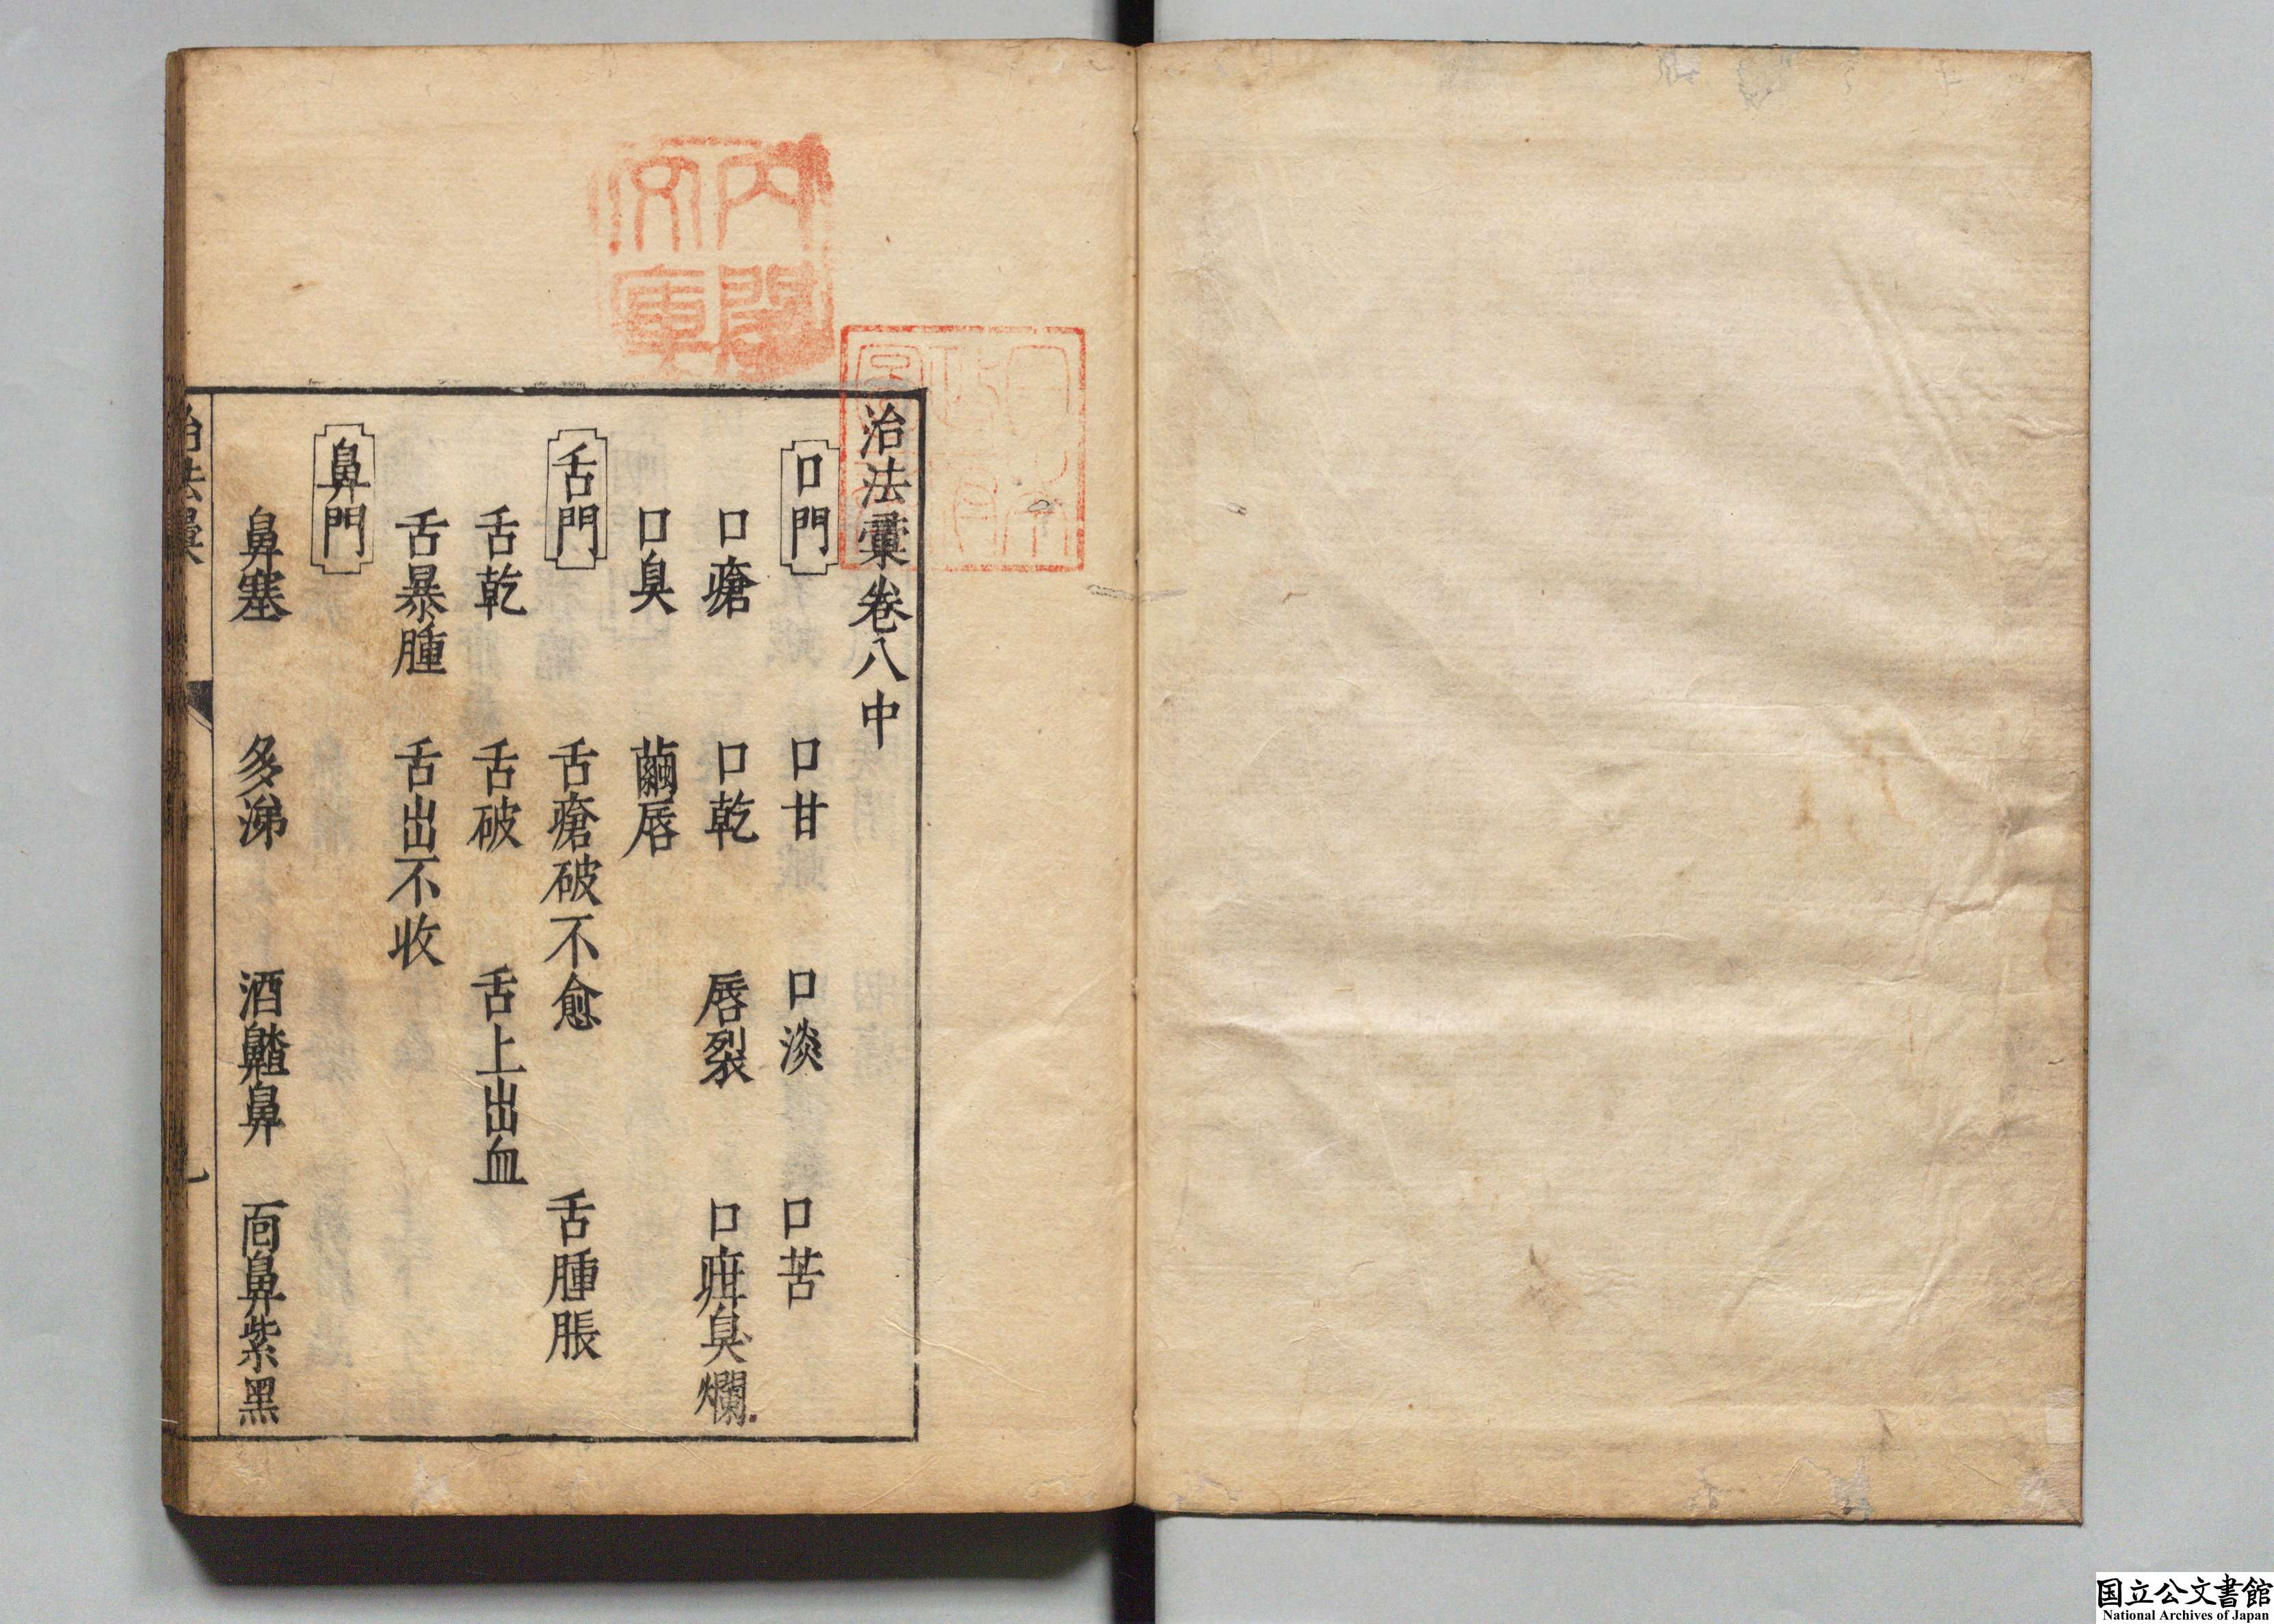 治法彙卷八中
口門　口甘　口淡　口苦
口瘡　口乾　唇裂　口疳臭爛
口臭　繭唇
舌門　舌瘡破不愈　舌腫脹
舌乾　舌破　舌上出血
舌暴腫　舌出不收
鼻門
鼻塞　多涕　酒齄鼻　面鼻紫黑
治法彙
內閣文庫
国立公文書館
National Archives of Japan